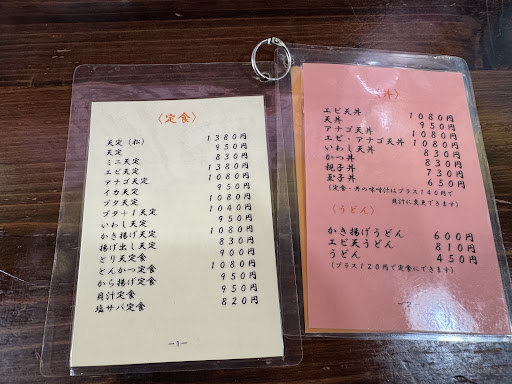 〈定食〉
天定（松） 1380円
天定 950円
ミニ天定 830円
エビ天定 1380円
アナゴ天定 1080円
イカ天定 950円
ブタ天定 1080円
ブタ＋1天定 1040円
いわし天定 950円
かき揚げ天定 1080円
揚げ出し天定 830円
とり天定食 900円
とんかつ定食 1080円
から揚げ定食 950円
貝汁定食 950円
塩サバ定食 820円
－1－
丼〉
エビ天丼 1080円
天丼 950円
アナゴ天丼 1080円
エビ・アナゴ天丼 1080円
いわし天丼 830円
かつ丼 830円
親子丼 730円
玉子丼 650円
（定食・丼の味噌汁はプラス140円で
貝汁に変更できます）
〈うどん〉
かき揚げうどん 600円
エビ天うどん 810円
うどん 450円
（プラス120円で定食にできます）
－2－